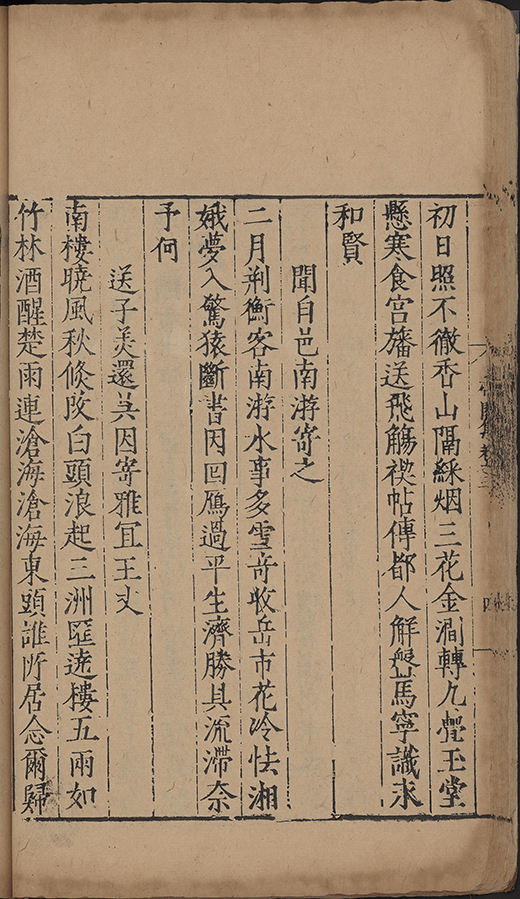 初日照不徹香山隔綵烟三花金澗轉九疊玉堂
懸寒食宫旛送飛觴禊帖傳都人解盤馬寧識永
和賢
聞自邑南游寄之
二月荆衡客南游水事多雪竒收岳市花冷怯湘
娥夢入驚猿斷書因囘鴈過平生濟勝具流滯奈
予何
送子羙還吴因寄雅宜王丈
南樓曉風秋倏攺白頭浪起三洲匯遶樓五兩如
竹林酒醒楚雨連滄海滄海東頭誰所居念爾歸